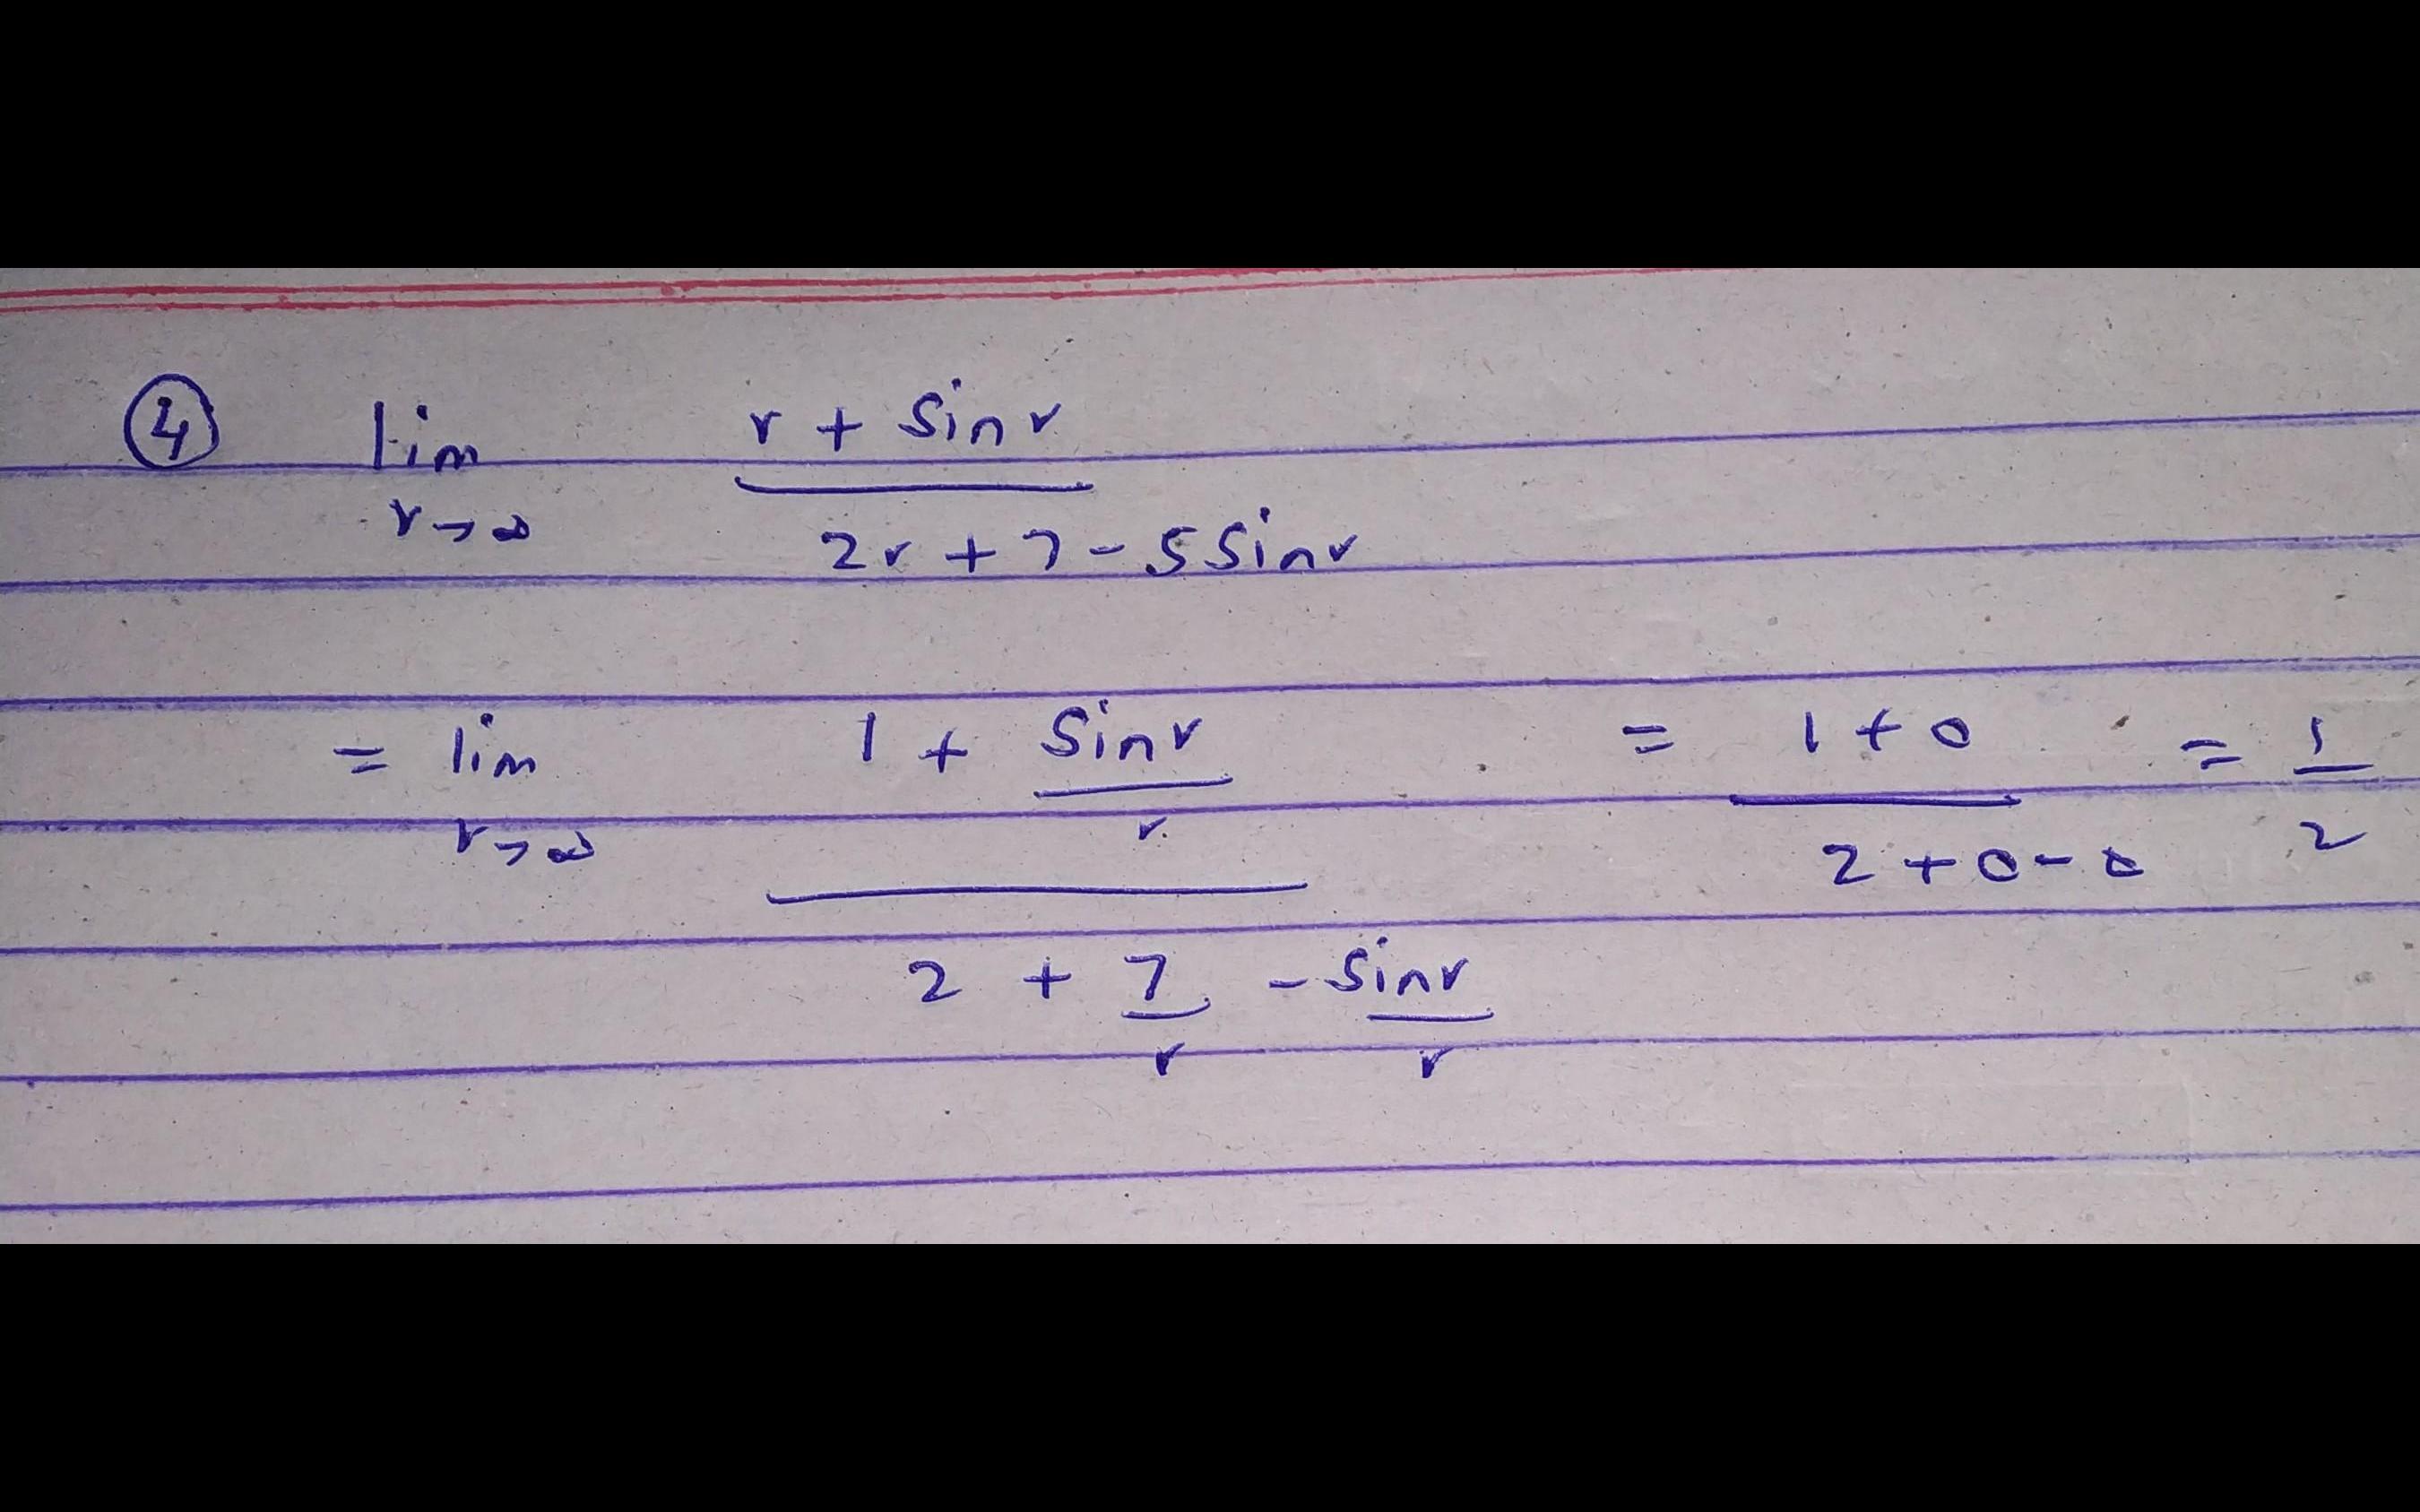 ④ lim r→∞ (r + sin r) / (2r + 7 - 5 sin r)
= lim r→∞ (1 + sin r / r) / (2 + 7/r - sin r / r) = (1 + 0) / (2 + 0 - 0) = 1/2